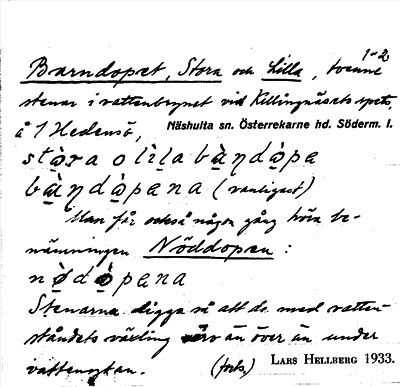 1-2
Barndopet, Stora och Lilla, tvenne
stenar i vattenbrynet vid Killingnäsets spets,
å I Hedensö, Näshulta sn. Österrekarne hd. Söderm. l.
stọ̀ra o lìla bạ̀ndọ̀pa
bạ̀ndọ̀pana (vanligast)
Man får också någon gång höra be-
nämningen Nöddopen:
nọ̀dọ̀pana
Stenarna ligga så att de med vatten-
ståndets växling äro än över än under
vattenytan. (forts.) LARS HELLBERG 1933.